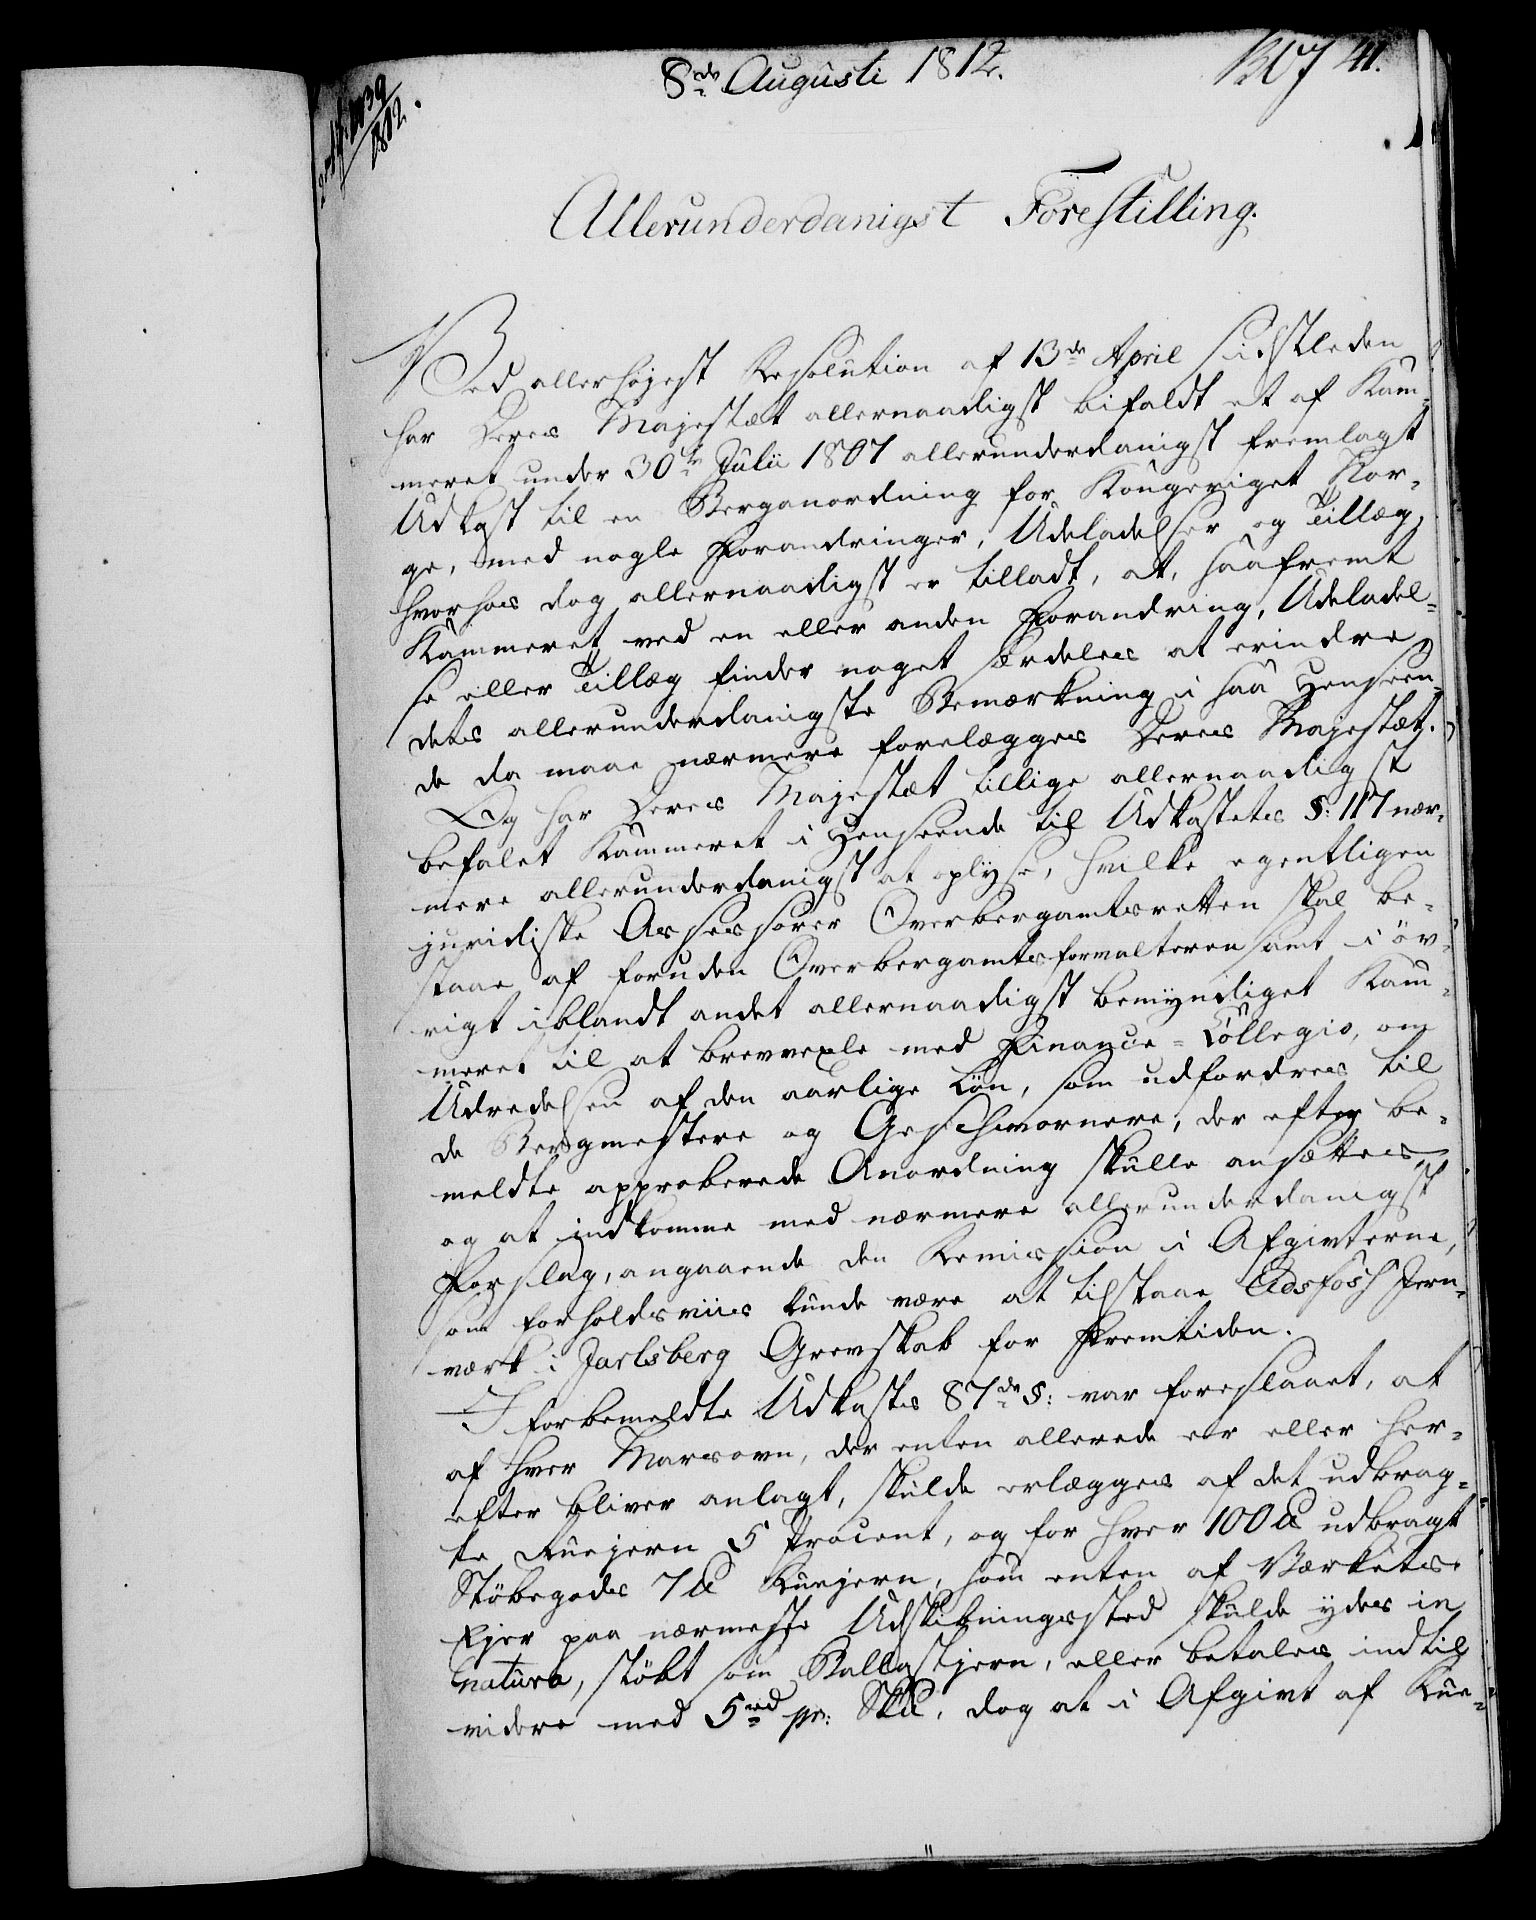 8de Augusti 1812.
41.
1039
1812.
Allerunderdanigst Forestilling.
Ved allerhöjest Resolution af 13de April sidstleden
har Deres Majestæt allernaadigst bifaldt et af Kam-
meret under 30te Julii 1807 allerunderdanigst fremlagt
Udkast til en Berganordning for Kongeriget Nor-
ge, med nogle Forandringer, Udeladelser og Tillæg,
hvorhos dog allernaadigst er tilladt, at, saafremt
Kammeret ved en eller anden Forandring, Udeladel-
se eller Tillæg finder noget særdeles at erindre,
dets allerunderdanigste Bemærkning i saa Henseen-
de da maae nærmere forelægges Deres Majestæt.
Og har Deres Majestæt tillige allernaadigst
befalet Kammeret i Henseende til Udkastets §: 117 nær-
mere allerunderdanigst at oplyse, hvilke egentligen
juridiske Assessorer Overbergamtsretten skal be-
staae af foruden Overbergamtsforvalteren samt i öv-
rigt iblandt andet allernaadigst bemyndiget Kam-
meret til at brevvexle med Finance-Collegio, om
Udredelsen af den aarlige Lön, som udfordres til
de Bergmestere og Geschwornere, der efter be-
meldte approberede Anordning skulle ansættes,
og at indkomme med nærmere allerunderdanigst
Forslag, angaaende den Remission i Afgivterne,
som forholdsviis kunde være at tilstaae Eidsfoss Jern-
værk i Jarlsberg Grevskab for Fremtiden.
I forbemeldte Udkasts 87de §: var foreslaaet, at
af hver Marsovn, der enten allerede er eller her-
efter bliver anlagt, skulde erlægges af det udbrag-
te Ruejern 5 Procent, og for hver 100 ℔ udbragt
Stöbegods 7 ℔ Ruejern, som enten af Værkets
Ejer paa nærmeste Udskibningssted skulde ydes in
natura, stöbt som Ballastjern, eller betales indtil
videre med 5 rd pr: Sk℔, dog at i Afgivt af Rue-